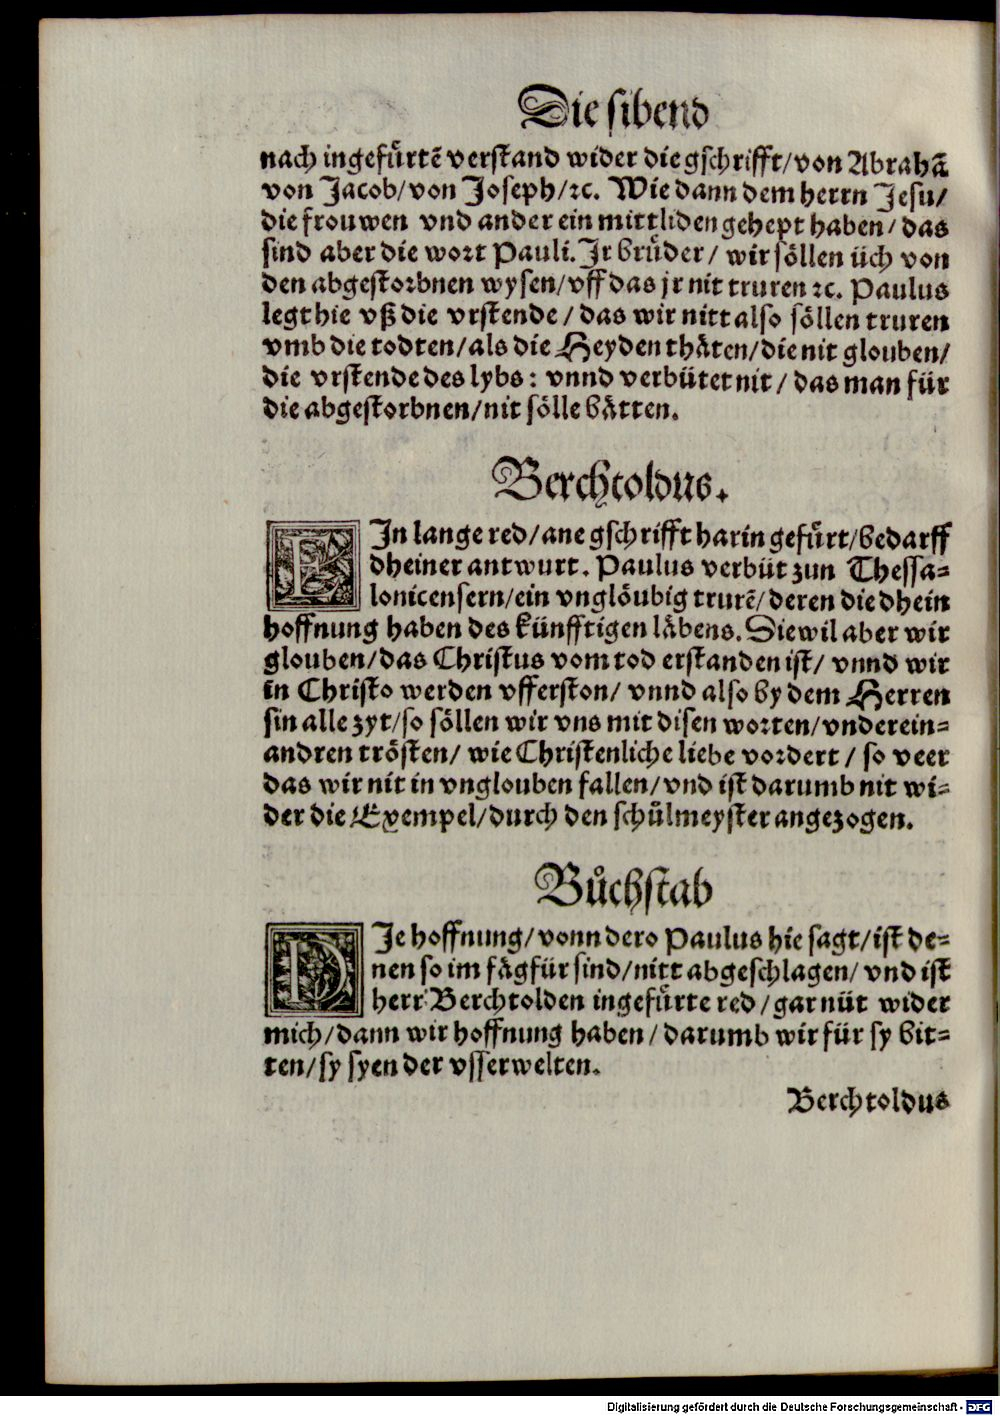 Die sibend
nach ingefürtē verstand wider die gschrifft/von Abrahā
von Jacob/von Joseph/ꝛc. Wie dann dem herrn Jesu/
die frouwen vnd ander ein mittliden gehept haben/das
sind aber die wort Pauli. Jr brüder/ wir söllen üch von
den abgestorbnen wysen/vff das jr nit truren ꝛc. Paulus
legt hie vß die vrstende/das wir nitt also söllen truren
vmb die todten/als die Heyden thäten/die nit glouben/
die vrstende des lybs: vnnd verbütet nit/das man für
die abgestorbnen/nit sölle bätten.
Berchtoldus.
EJn lange red/ane gschrifft harin gefürt/bedarff
dheiner antwurt. Paulus verbüt zun Thessa-
lonicensern/ein vnglöubig trurē/deren die dhein
hoffnung haben des künfftigen läbens. Diewil aber wir
glouben/das Christus vom tod erstanden ist/ vnnd wir
in Christo werden vfferston/ vnnd also by dem Herren
sin alle zyt/so söllen wir vns mit disen worten/vnderein-
andren trösten/ wie Christenliche liebe vordert/ so veer
das wir nit in vnglouben fallen/vnd ist darumb nit wi-
der die Exempel/durch den schůlmeyster angezogen.
Bůchstab
DJe hoffnung/vonn dero Paulus hie sagt/ist de-
nen so im fägfür sind/nitt abgeschlagen/ vnd ist
herr Berchtolden ingefürte red/gar nüt wider
mich/dann wir hoffnung haben/darumb wir für sy bit-
ten/sy syen der vsserwelten.
Berchtoldus
Digitalisierung gefördert durch die Deutsche Forschungsgemeinschaft - DFG